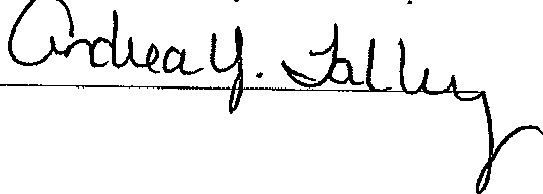 Andrea Y. Talley